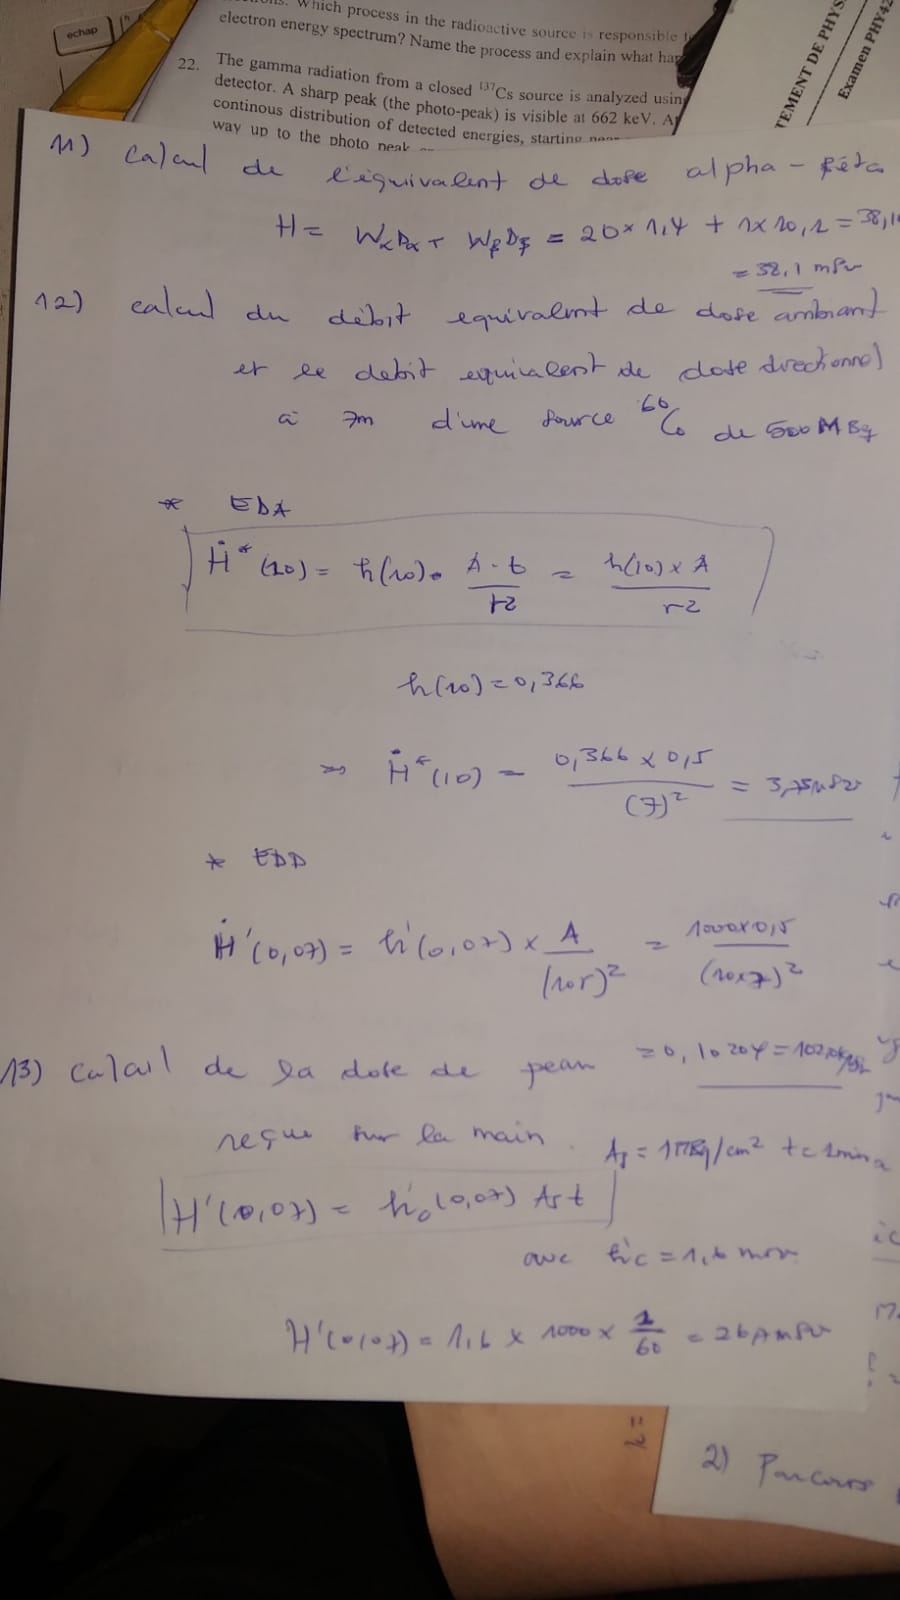 echap
Which process in the radioactive source is responsible
electron energy spectrum? Name the process and explain what
22. The gamma radiation from a closed ¹³⁷Cs source is analyzed
detector. A sharp peak (the photo-peak) is visible at 662 keV.
continous distribution of detected energies, starting
way up to the photo peak
TEMENT DE PHYS
Examen PHY42
11) calcul de l'équivalent de dose alpha - bêta
H = WαDα + WβDβ = 20 × 1,4 + 1 × 10,1 = 38,1
= 38,1 mSv
12) calcul du débit equivalent de dose ambiant
et le debit equivalent de dose directionnel
à 7m d'une source ⁶⁰Co de 500 MBq
* EDA
Ḣ*(10) = h(10) · A·t / r² = h(10) × A / r²
h(10) = 0,366
⇒ Ḣ*(10) = 0,366 × 0,5 / (7)² =
* EDD
Ḣ'(0,07) = h'(0,07) × A / (10r)² = 1000 × 0,5 / (10×7)²
13) calcul de la dose de peau
reçue sur la main.
H'(0,07) = h'c(0,07) As t
avec h'c = 1,6
H'(0,07) = 1,6 × 1000 × 1/60 =
2) Parcours